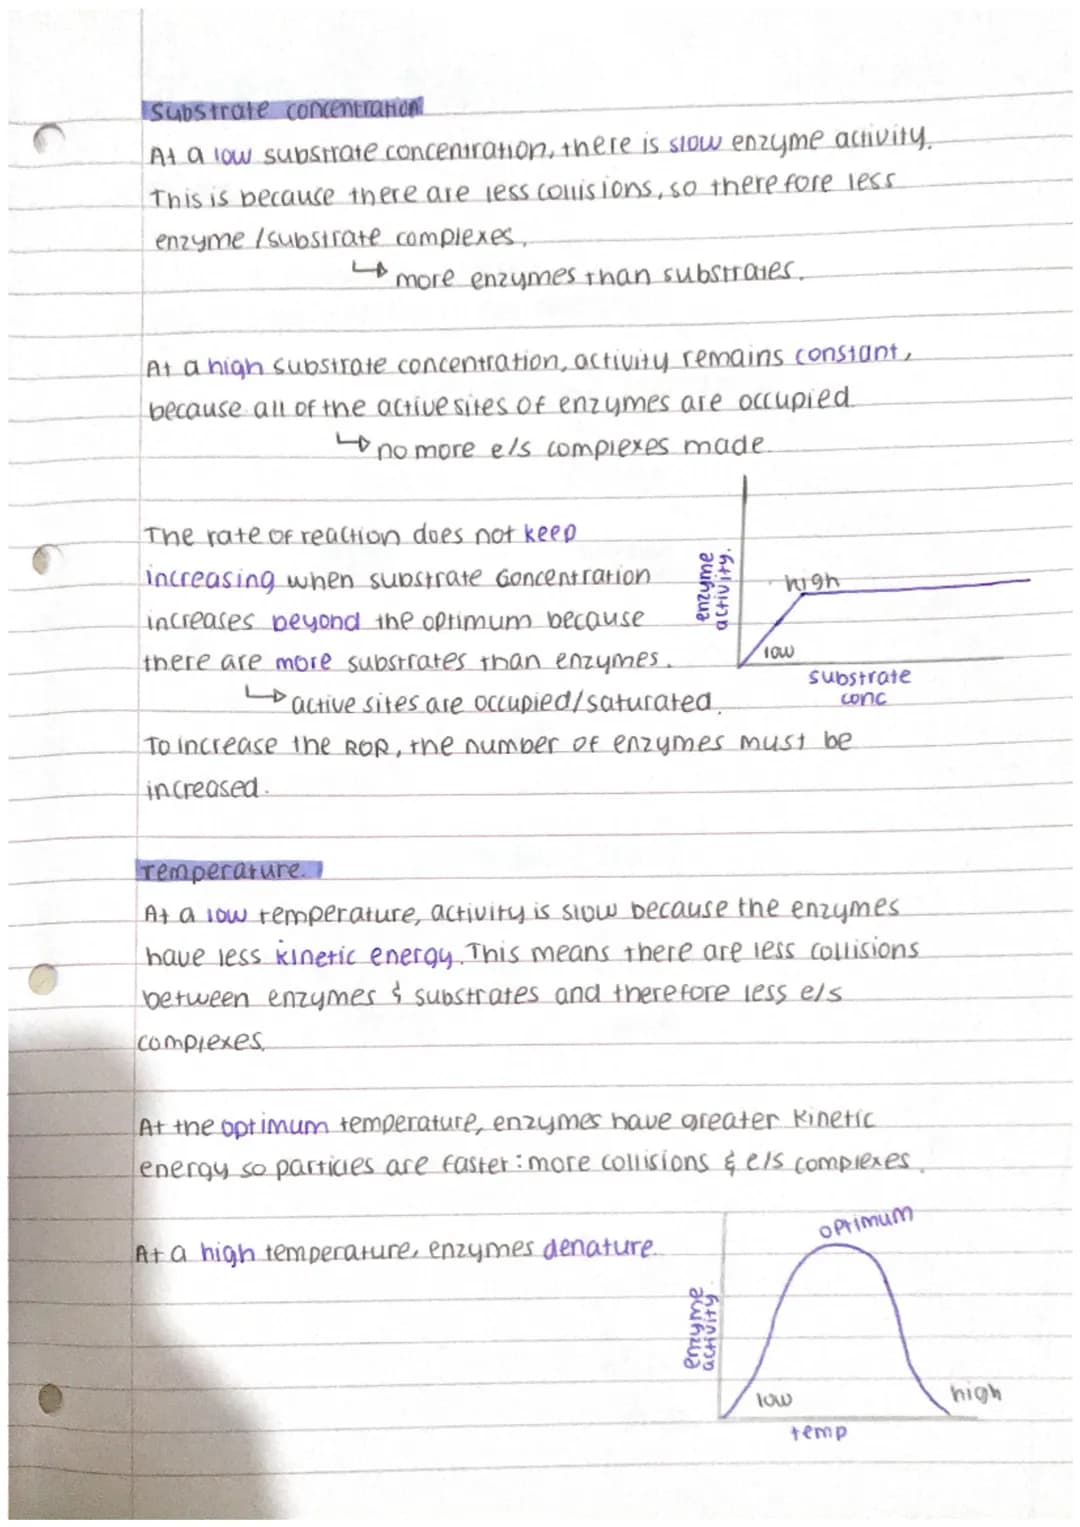 Substrate concentration
At a low substrate concentration, there is slow enzyme activity.
This is because there are less collisions, so therefore less
enzyme/substrate complexes.
↳ more enzymes than substrates.
At a high substrate concentration, activity remains constant,
because all of the active sites of enzymes are occupied.
↳ no more e/s complexes made.
The rate of reaction does not keep
increasing when substrate concentration
increases beyond the optimum because
there are more substrates than enzymes.
↳ active sites are occupied/saturated.
To increase the ROR, the number of enzymes must be
increased.
enzyme
activity.
high
low
substrate
conc
Temperature.
At a low temperature, activity is slow because the enzymes
have less kinetic energy. This means there are less collisions
between enzymes & substrates and therefore less e/s
complexes.
At the optimum temperature, enzymes have greater kinetic
energy so particles are faster: more collisions & e/s complexes.
At a high temperature, enzymes denature.
enzyme
activity.
optimum
low
high
temp